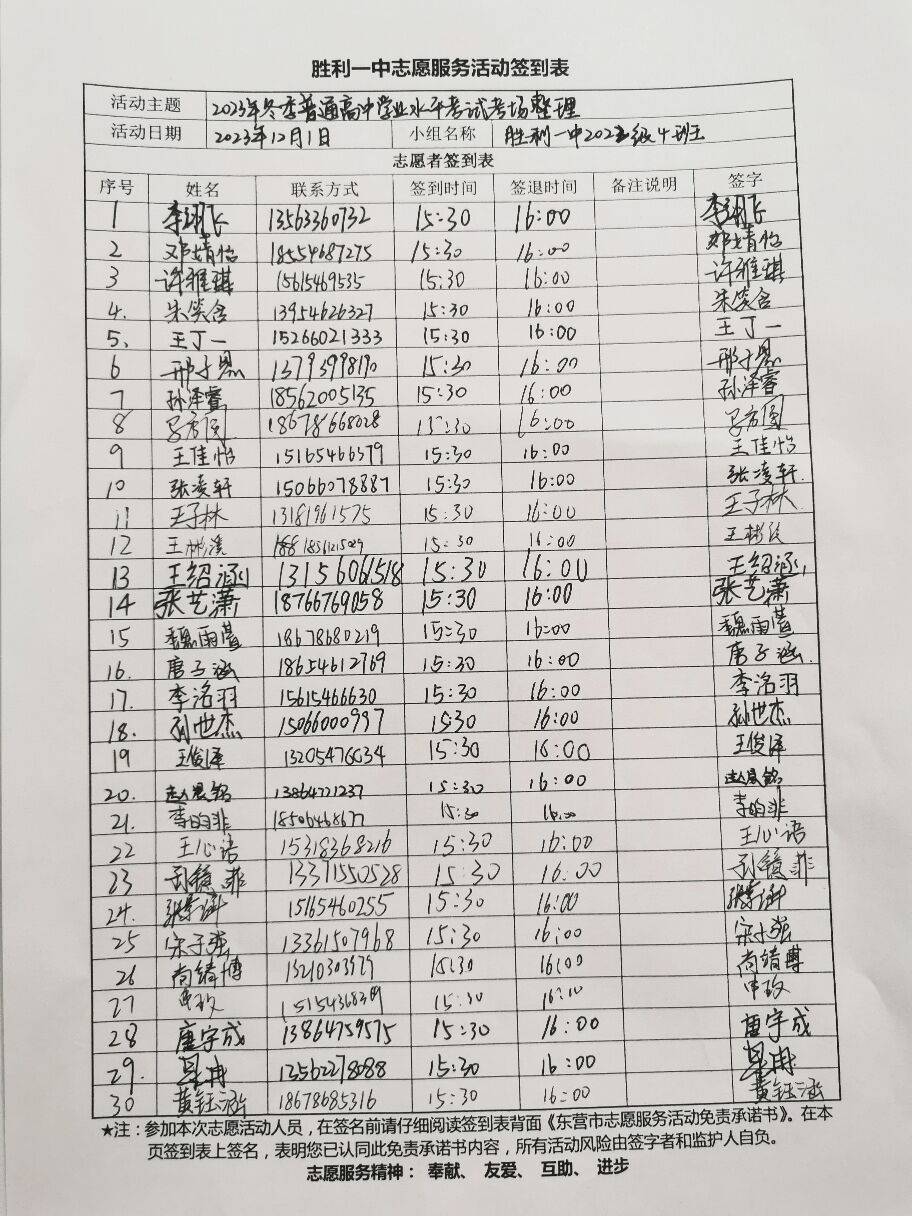 胜利一中志愿服务活动签到表
活动主题 2023年冬季普通高中学业水平考试考场整理
活动日期 2023年12月1日 小组名称 胜利一中2022级4班
志愿者签到表
序号 姓名 联系方式 签到时间 签退时间 备注说明 签字
1 李翊飞 13563360732 15:30 16:00 李翊飞
2 邓婧怡 18554687275 15:30 16:00 邓婧怡
3 许雅琪 15615469535 15:30 16:00 许雅琪
4. 朱笑含 13954626327 15:30 16:00 朱笑含
5. 王丁一 15266021333 15:30 16:00 王丁一
6 邢子恩 13793998190 15:30 16:00 邢子恩
7 孙泽睿 18562005135 15:30 16:00 孙泽睿
8 18678668028 15:30 16:00
9 王佳怡 15165466379 15:30 16:00 王佳怡
10 张凌轩 15066078887 15:30 16:00 张凌轩
11 王子林 13181961575 15:30 16:00 王子林
12 王彬 15:30 16:00 王彬
13 王绍涵 13156061518 15:30 16:00 王绍涵
14 张艺潇 18766769058 15:30 16:00 张艺潇
15 魏雨萱 18678680219 15:30 16:00 魏雨萱
16. 唐子涵 18654612769 15:30 16:00 唐子涵
17. 李洛羽 15615466630 15:30 16:00 李洛羽
18. 孙世杰 15066000997 15:30 16:00 孙世杰
19 王俊泽 13205476034 15:30 16:00 王俊泽
20. 赵晨铭 13864721237 15:30 16:00 赵晨铭
21. 李昀非 18506468677 15:30 16:00 李昀非
22 王心语 15318368216 15:30 16:00 王心语
23 孙颢菲 13371550528 15:30 16:00 孙颢菲
24. 15165460255 15:30 16:00
25 宋子强 13361507968 15:30 16:00 宋子强
26 尚绪博 13210303979 15:30 16:00 尚绪博
27 申玫 15:30 16:10 申玫
28 唐宇成 13864759575 15:30 16:00 唐宇成
29. 13562278088 15:30 16:00
30 黄钰涵 18678685316 15:30 16:00 黄钰涵
★注：参加本次志愿活动人员，在签名前请仔细阅读签到表背面《东营市志愿服务活动免责承诺书》。在本
页签到表上签名，表明您已认同此免责承诺书内容，所有活动风险由签字者和监护人自负。
志愿服务精神： 奉献、 友爱、 互助、 进步